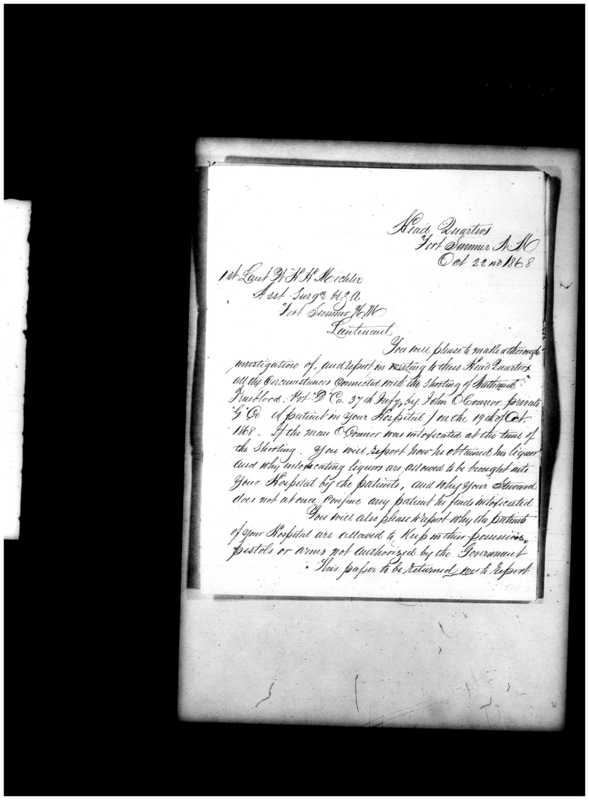 Head Quarters
Fort Sumner N.M
Oct 22nd 1868
1st Lieut
Asst Surgn U.S.A
Fort Sumner N.M
Lieutenant,
You will please to make a thorough
investigation of, and report in writing to these Head Quarters
all the circumstances connected with the shooting of
Co. 37th Infy, by John O'Connor, private
"G" Co (A patient in your Hospital) on the 19th of Oct
1868. If the man O'Connor was intoxicated at the time of
the shooting. You will report how he obtained his liquor
and why intoxicating liquors are allowed to be brought into
your Hospital by the patients, and why your Steward
does not at once, confine any patient he finds intoxicated
You will also please to report why the patients
of your Hospital are allowed to keep in their possession,
pistols or arms not authorized by the Government
This paper to be returned with report